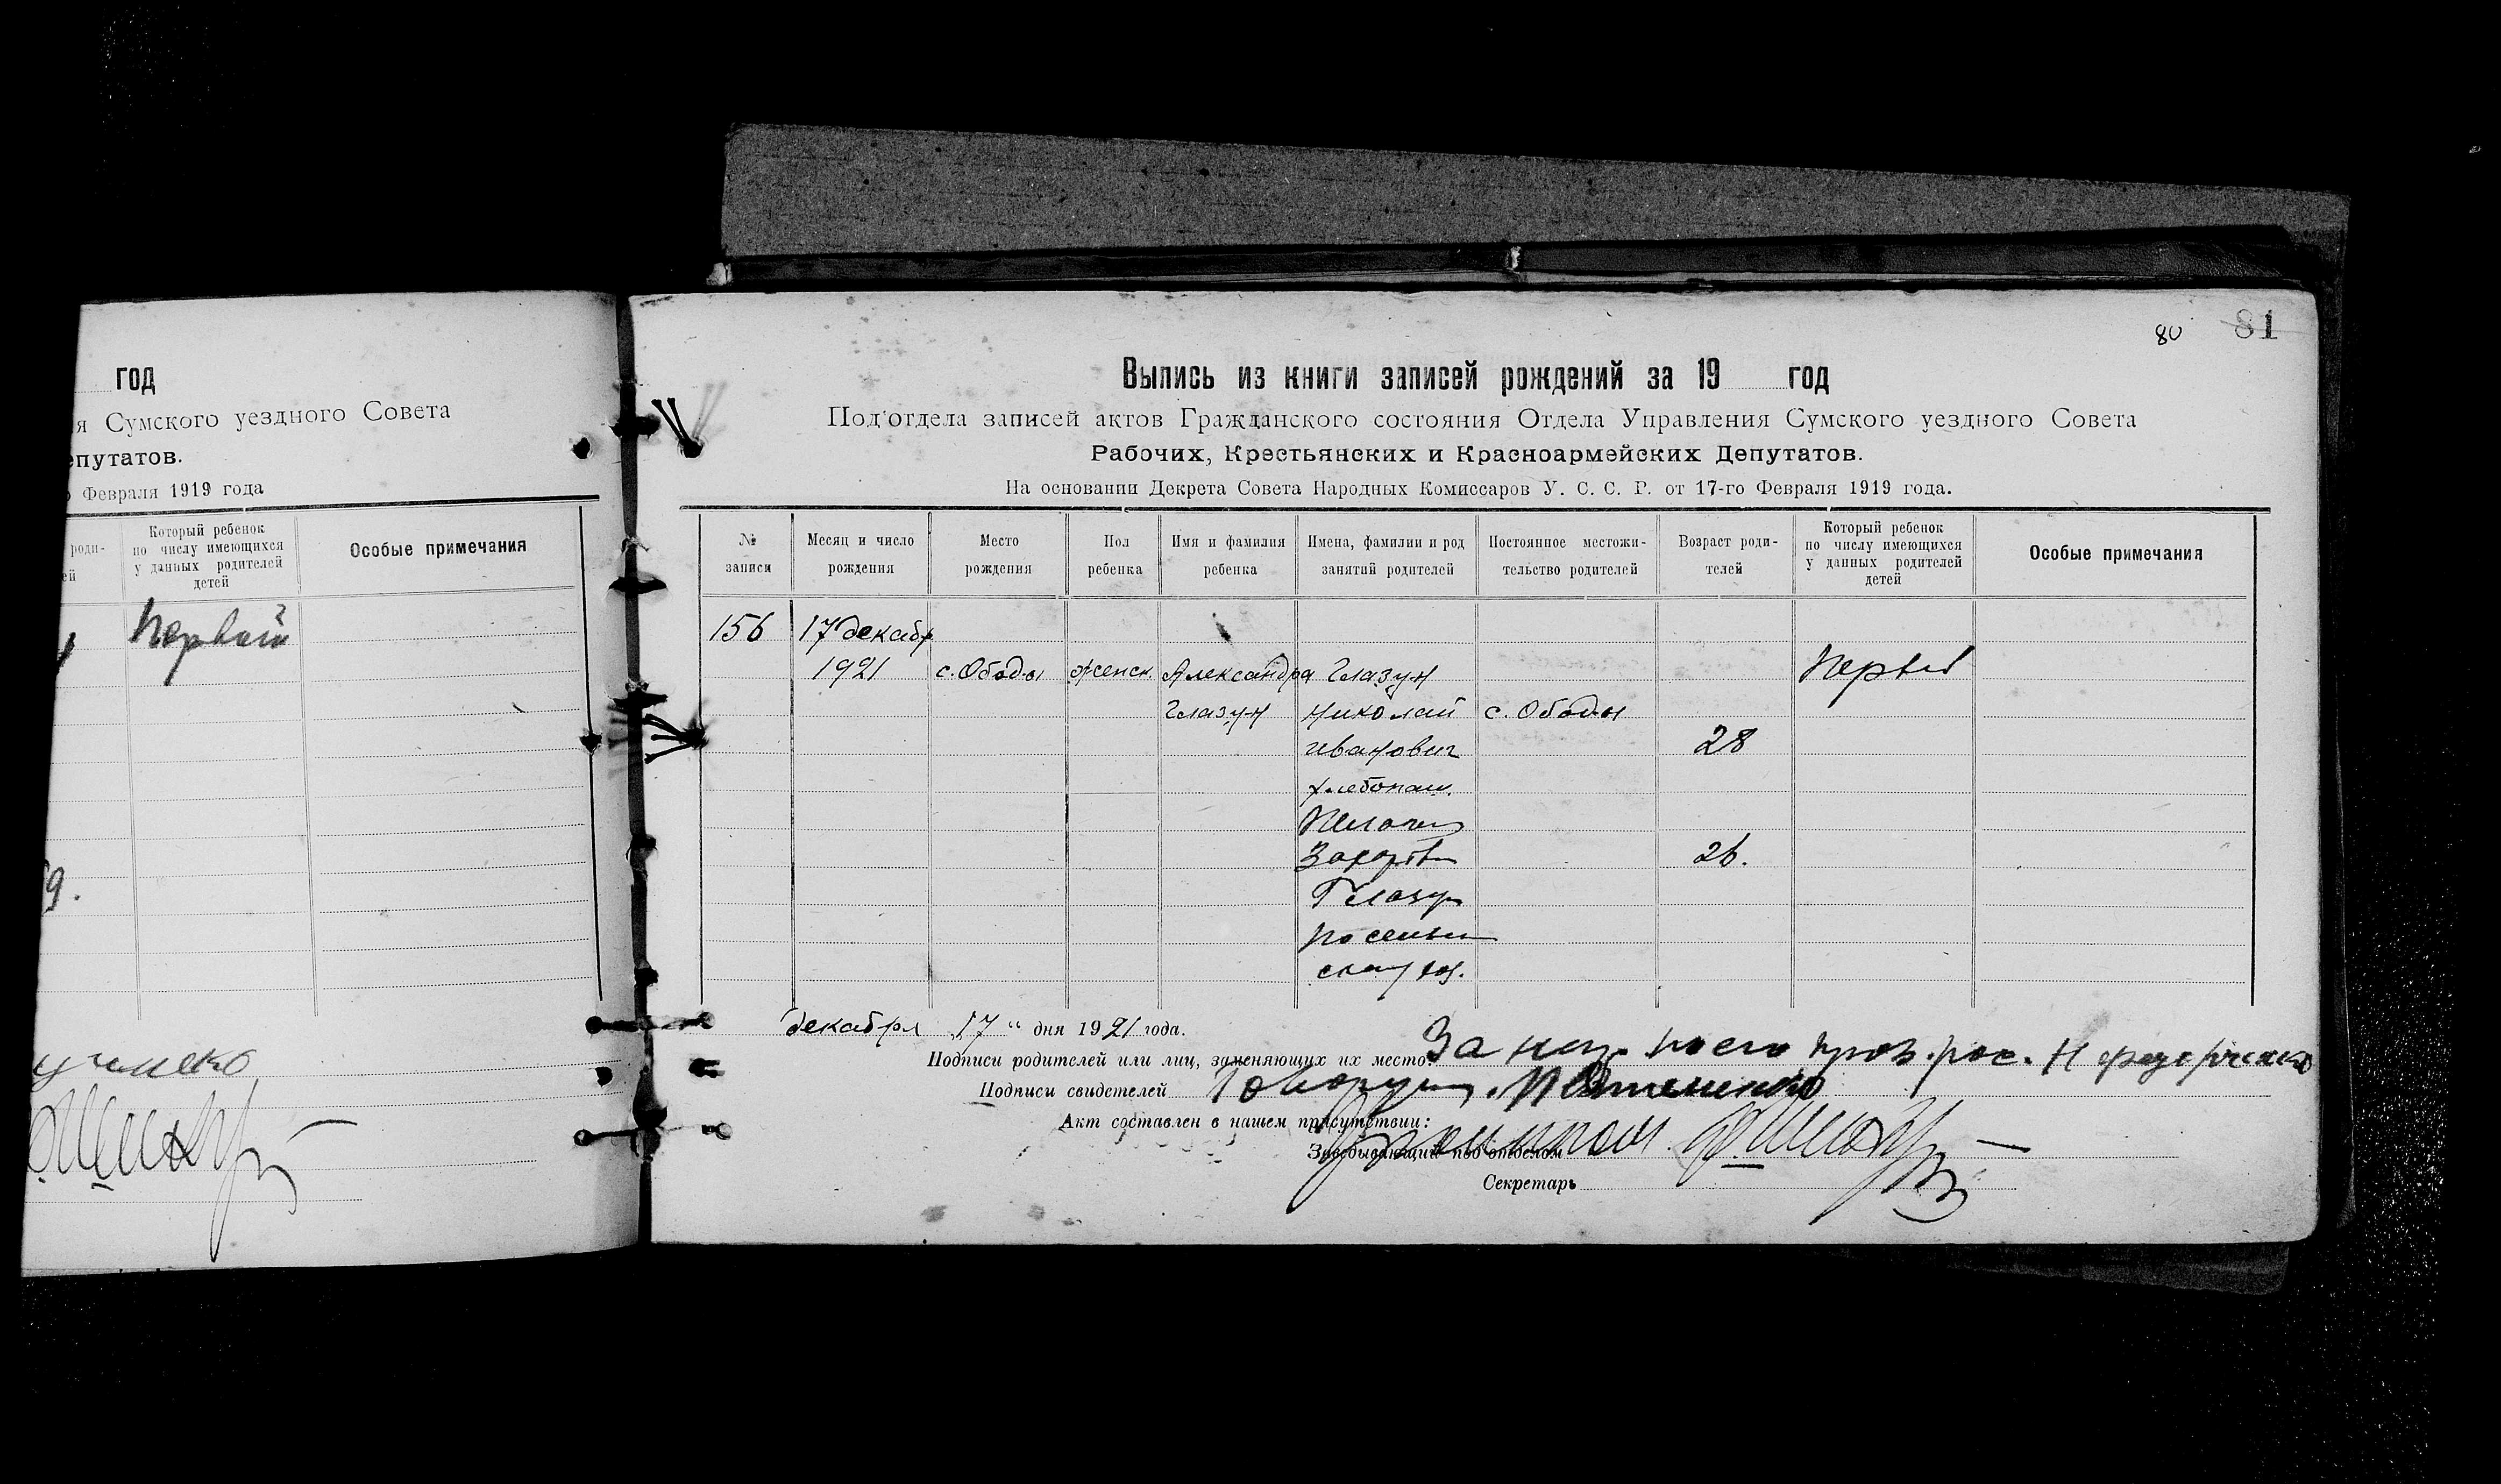 год
я Сумского уездного Совета
епутатов.
Февраля 1919 года
роди-
ей
Который ребенок
по числу имеющихся
у данных родителей
детей
Особые примечания
Первый
9.
80 81
Выпись из книги записей рождений за 19 год
Под'отдела записей актов Гражданского состояния Отдела Управления Сумского уездного Совета
Рабочих, Крестьянских и Красноармейских Депутатов.
На основании Декрета Совета Народных Комиссаров У. С. С. Р. от 17-го Февраля 1919 года.
№
записи
Месяц и число
рождения
Место
рождения
Пол
ребенка
Имя и фамилия
ребенка
Имена, фамилии и род
занятий родителей
Постоянное местожи-
тельство родителей
Возраст роди-
телей
Который ребенок
по числу имеющихся
у данных родителей
детей
Особые примечания
156 17 декабр
1921 с. Ободы женск. Александра Глазун
Глазун Николай с. Ободы
Иванович 28
хлебопаш.
26.
Глазун
декабря 17 " дня 1921 года.
Подписи родителей или лиц, заменяющих их место
Подписи свидетелей
Акт составлен в нашем присутствии:
Заведывающий под'отделом
Секретарь